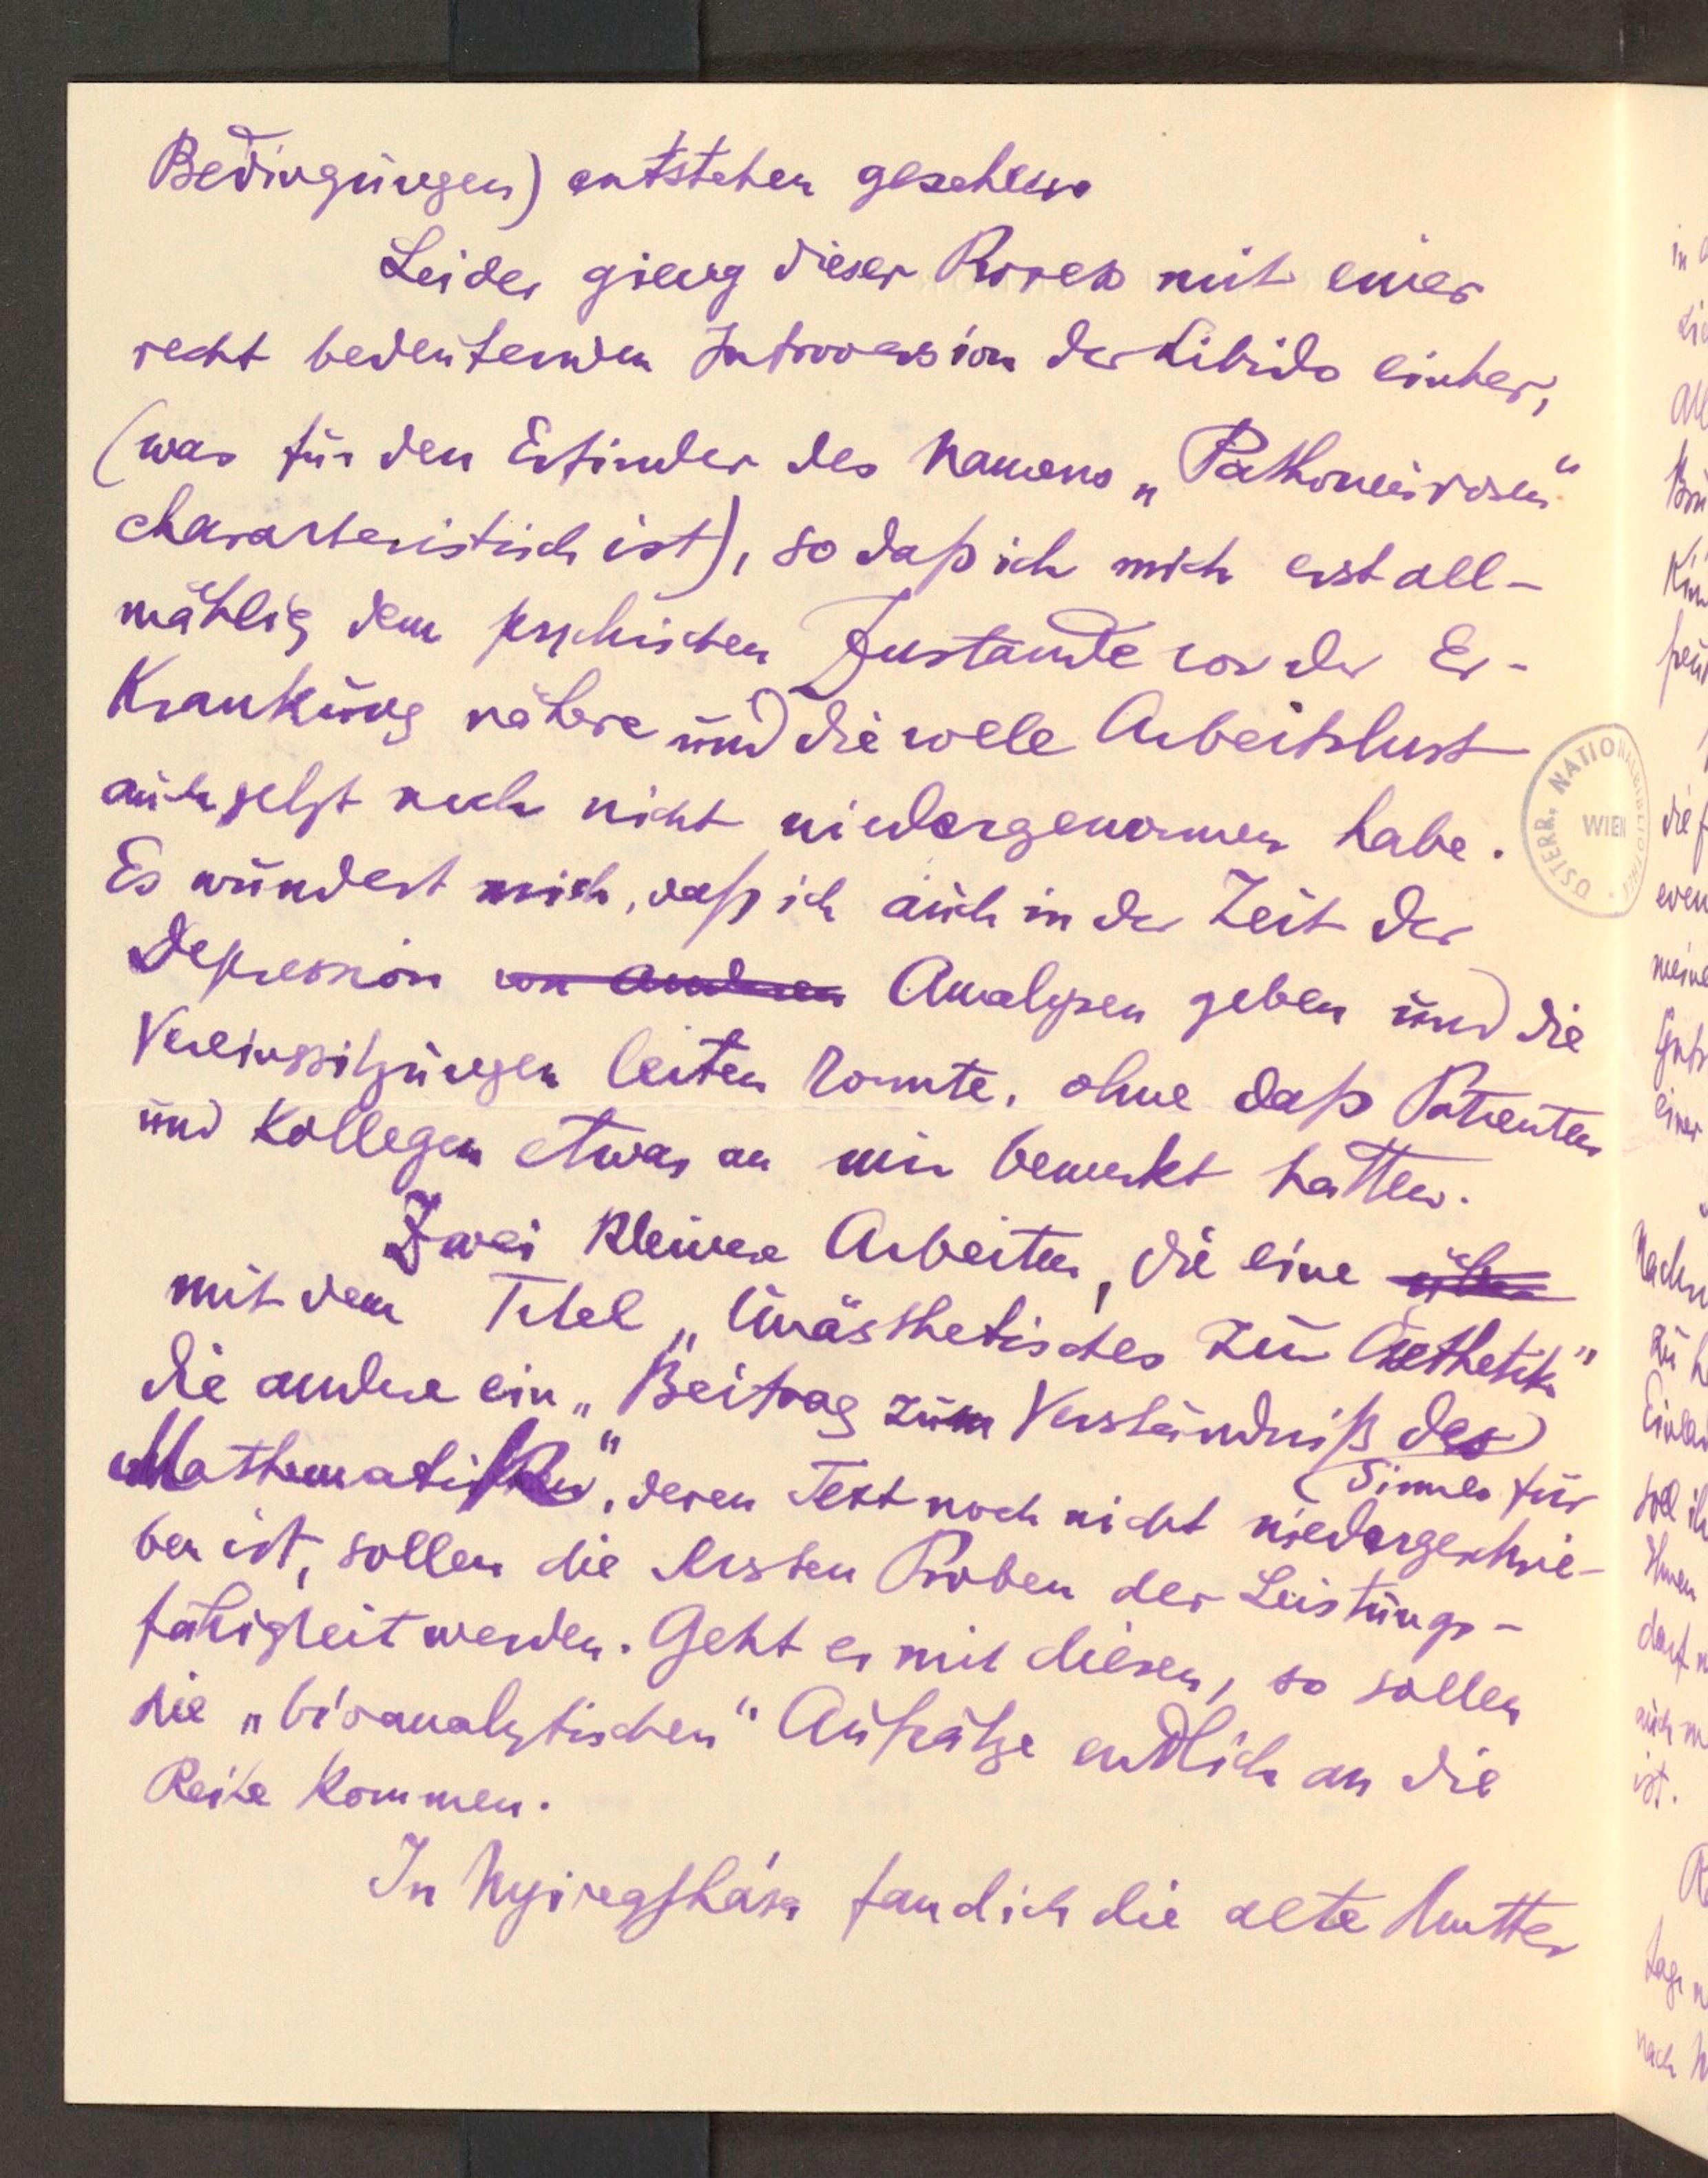 Bedingungen) entstehen gesehen.
Leider gieng dieser Prozess mit einer
recht bedeutenden Introversion der Libido einher,
(was für den Erfinder des Namens „Pathoneurosen“
characteristisch ist), so daß ich mich erst all-
mählig dem psychischen Zustande vor der Er-
krankung nähere und die volle Arbeitslust
auch jetzt noch nicht wiedergenommen habe.
Es wundert mich, daß ich auch in der Zeit der
Depression von anderen Analysen geben und die
Vereinssitzungen leiten konnte, ohne daß Patienten
und Kollegen etwas an mir bemerkt hatten.
Zwei kleinere Arbeiten, die eine über
mit dem Titel „Unästhetisches zur Aesthetik“
die andere ein „Beitrag zum Verständniß des
Sinnes für
Mathematik“, deren Text noch nicht niedergeschrie-
ben ist, sollen die ersten Proben der Leistungs-
fähigkeit werden. Geht es mit diesen, so sollen
die „bioanalytischen“ Aufsätze endlich an die
Reihe kommen.
In Nyiregyháza fand ich die alte Mutter
ÖSTERR. NATIONALBIBLIOTHEK
WIEN